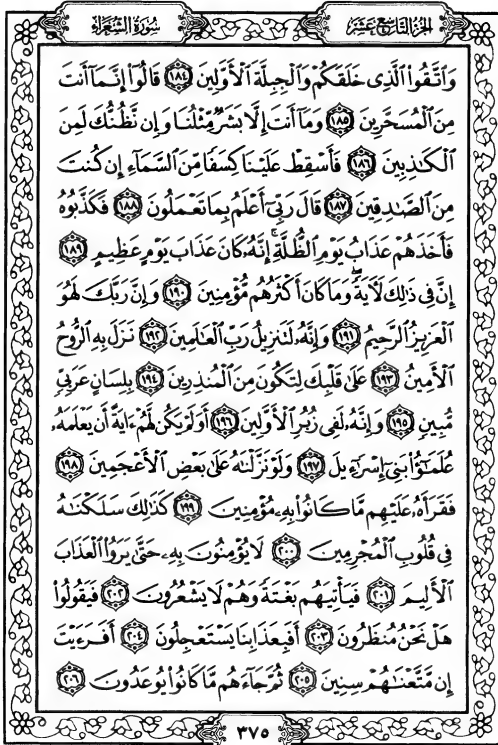 سُورَةُ الشُّعَرَاءِ
الجُزْءُ التَّاسِعَ عَشَرَ
وَٱتَّقُوا۟ ٱلَّذِى خَلَقَكُمْ وَٱلْجِبِلَّةَ ٱلْأَوَّلِينَ ١٨٤ قَالُوٓا۟ إِنَّمَآ أَنتَ
مِنَ ٱلْمُسَحَّرِينَ ١٨٥ وَمَآ أَنتَ إِلَّا بَشَرٌ مِّثْلُنَا وَإِن نَّظُنُّكَ لَمِنَ
ٱلْكَٰذِبِينَ ١٨٦ فَأَسْقِطْ عَلَيْنَا كِسَفًا مِّنَ ٱلسَّمَآءِ إِن كُنتَ
مِنَ ٱلصَّٰدِقِينَ ١٨٧ قَالَ رَبِّىٓ أَعْلَمُ بِمَا تَعْمَلُونَ ١٨٨ فَكَذَّبُوهُ
فَأَخَذَهُمْ عَذَابُ يَوْمِ ٱلظُّلَّةِ ۚ إِنَّهُۥ كَانَ عَذَابَ يَوْمٍ عَظِيمٍ ١٨٩
إِنَّ فِى ذَٰلِكَ لَءَايَةً ۖ وَمَا كَانَ أَكْثَرُهُم مُّؤْمِنِينَ ١٩٠ وَإِنَّ رَبَّكَ لَهُوَ
ٱلْعَزِيزُ ٱلرَّحِيمُ ١٩١ وَإِنَّهُۥ لَتَنزِيلُ رَبِّ ٱلْعَٰلَمِينَ ١٩٢ نَزَلَ بِهِ ٱلرُّوحُ
ٱلْأَمِينُ ١٩٣ عَلَىٰ قَلْبِكَ لِتَكُونَ مِنَ ٱلْمُنذِرِينَ ١٩٤ بِلِسَانٍ عَرَبِىٍّ
مُّبِينٍ ١٩٥ وَإِنَّهُۥ لَفِى زُبُرِ ٱلْأَوَّلِينَ ١٩٦ أَوَلَمْ يَكُن لَّهُمْ ءَايَةً أَن يَعْلَمَهُۥ
عُلَمَٰٓؤُا۟ بَنِىٓ إِسْرَٰٓءِيلَ ١٩٧ وَلَوْ نَزَّلْنَٰهُ عَلَىٰ بَعْضِ ٱلْأَعْجَمِينَ ١٩٨
فَقَرَأَهُۥ عَلَيْهِم مَّا كَانُوا۟ بِهِۦ مُؤْمِنِينَ ١٩٩ كَذَٰلِكَ سَلَكْنَٰهُ
فِى قُلُوبِ ٱلْمُجْرِمِينَ ٢٠٠ لَا يُؤْمِنُونَ بِهِۦ حَتَّىٰ يَرَوُا۟ ٱلْعَذَابَ
ٱلْأَلِيمَ ٢٠١ فَيَأْتِيَهُم بَغْتَةً وَهُمْ لَا يَشْعُرُونَ ٢٠٢ فَيَقُولُوا۟
هَلْ نَحْنُ مُنظَرُونَ ٢٠٣ أَفَبِعَذَابِنَا يَسْتَعْجِلُونَ ٢٠٤ أَفَرَءَيْتَ
إِن مَّتَّعْنَٰهُمْ سِنِينَ ٢٠٥ ثُمَّ جَآءَهُم مَّا كَانُوا۟ يُوعَدُونَ ٢٠٦
٣٧٥